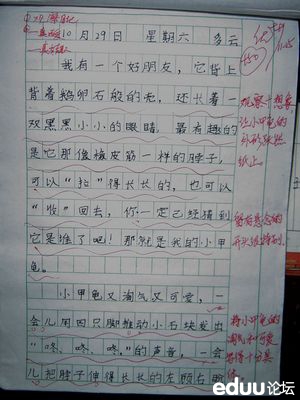 10月29日 星期六 多云
我有一个好朋友，它背上
背着鹅卵石般的壳，还长着一
双黑黑小小的眼睛，最有趣的
是它那像橡皮筋一样的脖子，
可以“拉”得长长的，也可以
“收”回去，你一定已经猜到
它是谁了吧！那就是我的小甲
龟。
小甲龟又淘气又可爱，一
会儿用四只脚推动小石块发出
“咚、咚、咚”的声音，一会
儿把脖子伸得长长的左顾右盼
观察+想象
让小甲龟的
外形跃然
纸上
开头很特别
将小甲龟的
淘气和可爱
写得十分具
体
eduu论坛